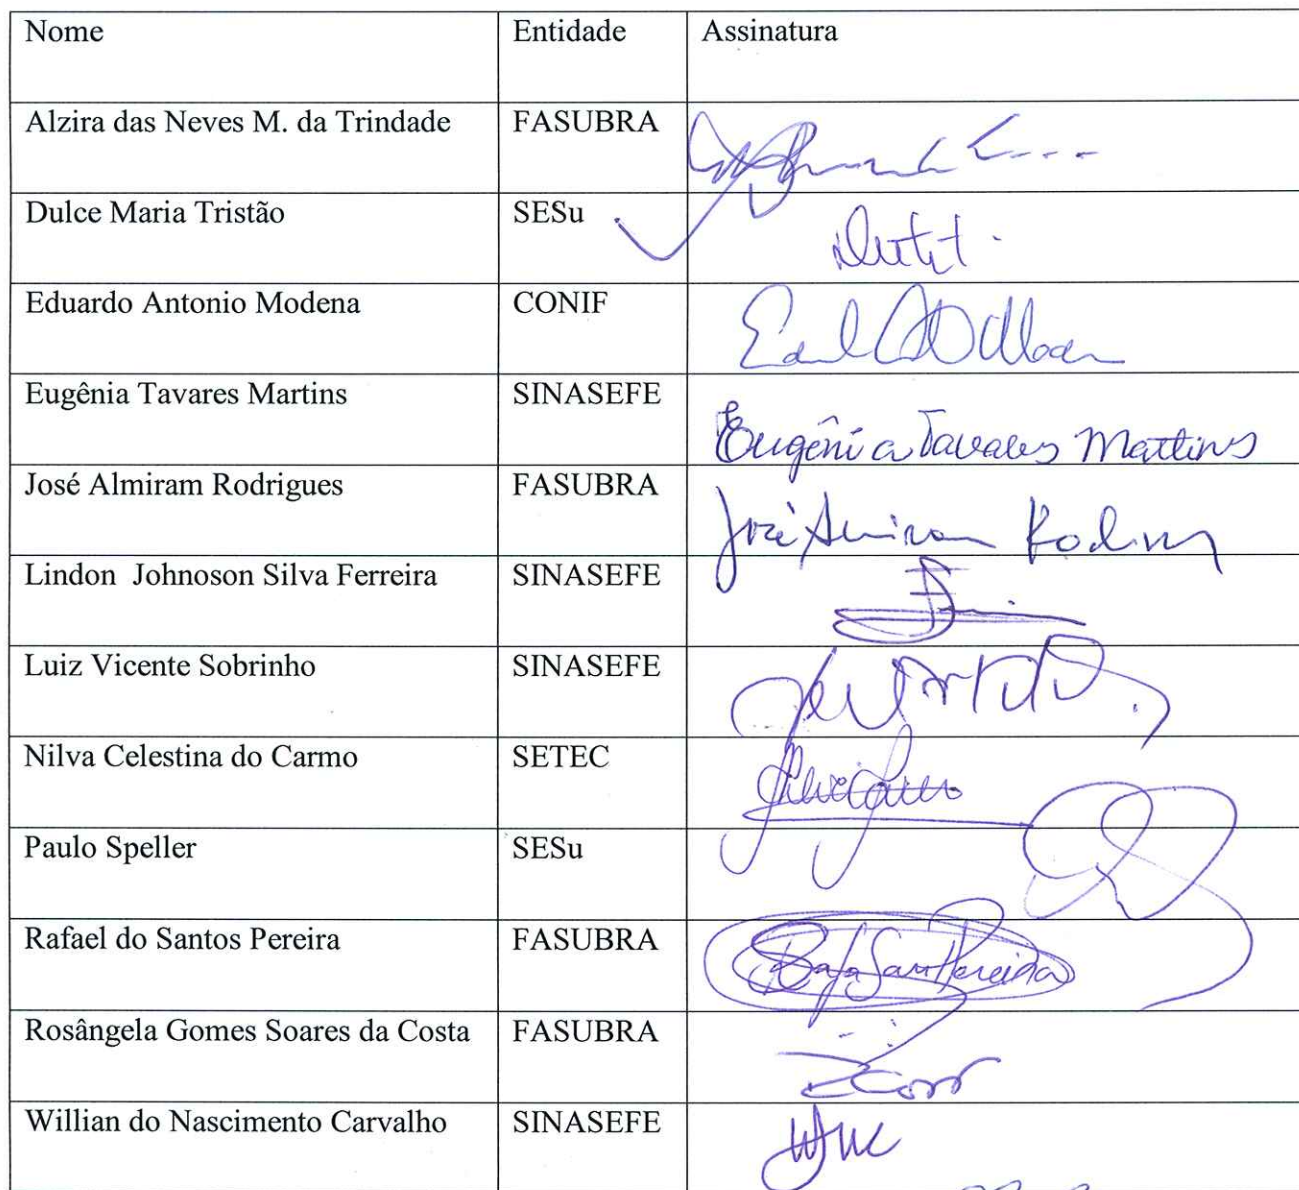 Nome Entidade Assinatura
Alzira das Neves M. da Trindade FASUBRA
Dulce Maria Tristão SESu
Eduardo Antonio Modena CONIF
Eugênia Tavares Martins SINASEFE Eugênia Tavares Martins
José Almiram Rodrigues FASUBRA
Lindon Johnoson Silva Ferreira SINASEFE
Luiz Vicente Sobrinho SINASEFE
Nilva Celestina do Carmo SETEC
Paulo Speller SESu
Rafael do Santos Pereira FASUBRA
Rosângela Gomes Soares da Costa FASUBRA
Willian do Nascimento Carvalho SINASEFE